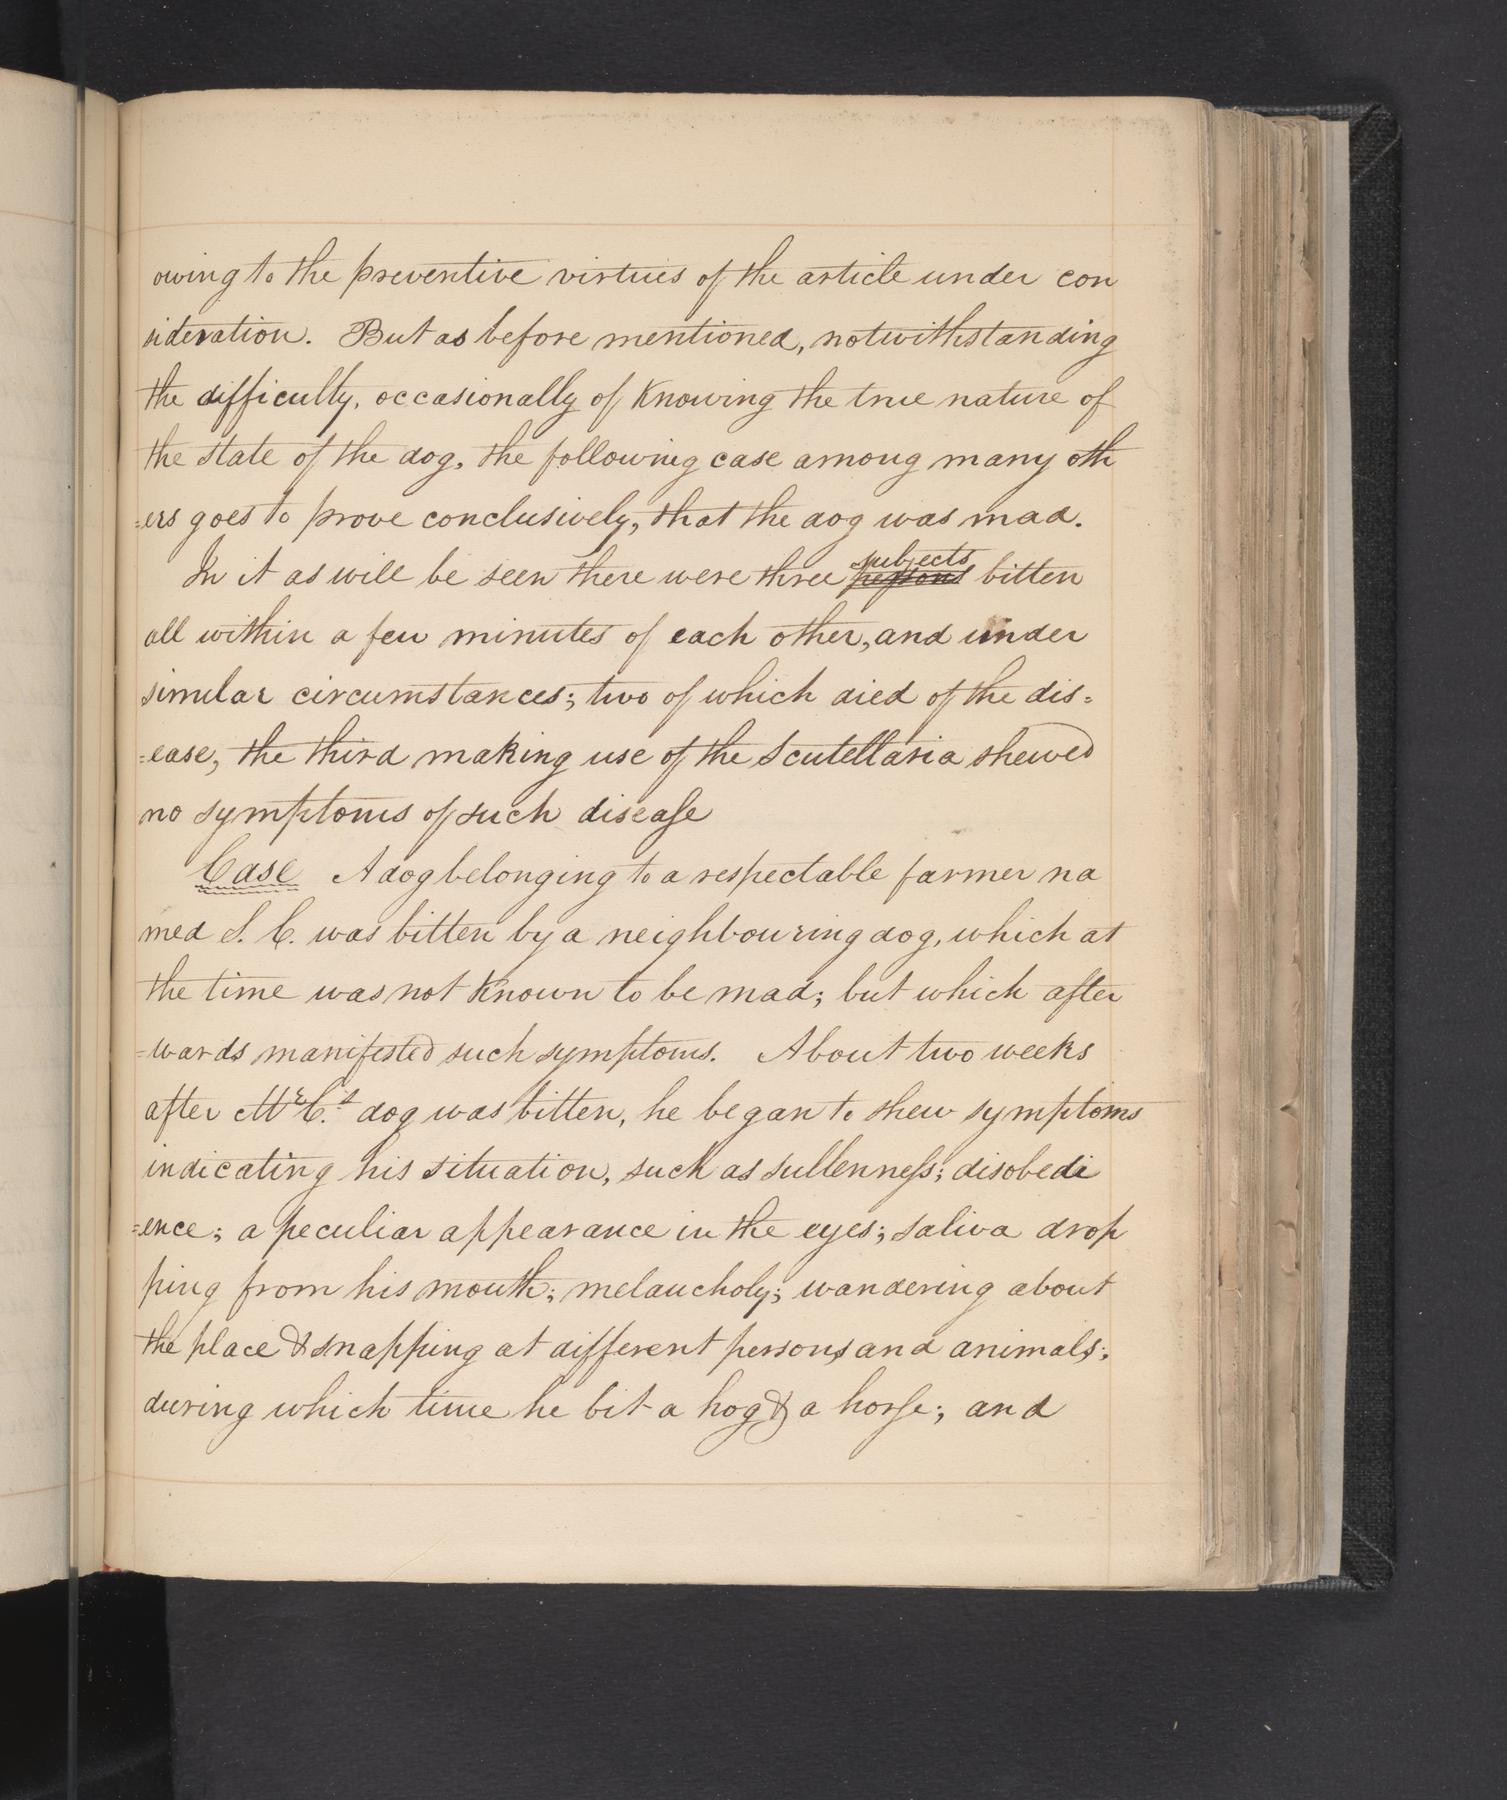 owing to the preventive virtues of the article under con
sideration. But as before mentioned, notwithstanding
the difficulty, occasionally of knowing the true nature of
the state of the dog, the following case among many oth
=ers goes to prove conclusively, that the dog was mad.
In it as will be seen there were three persons subjects bitten
all within a few minutes of each other, and under
similar circumstances; two of which died of the dis=
=ease, the third making use of the Scutellaria shewed
no symptoms of such disease
Case A dog belonging to a respectable farmer na
med S. C. was bitten by a neighbouring dog, which at
the time was not known to be mad; but which after
=wards manifested such symptoms. About two weeks
after Mr C.s dog was bitten, he began to shew symptoms
indicating his situation, such as sullenness; disobedi
=ence; a peculiar appearance in the eyes; saliva drop
ping from his mouth; melancholy; wandering about
the place & snapping at different persons and animals;
during which time he bit a hog & a horse; and